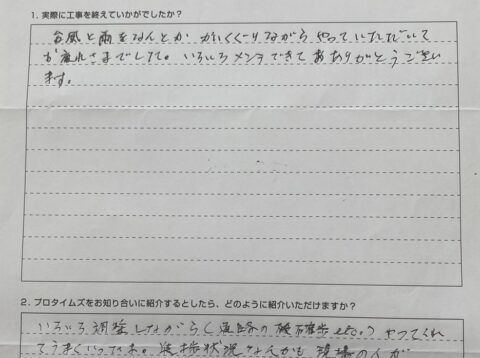 1. 実際に工事を終えていかがでしたか？
台風と雨をなんとか かいくぐりながら やっていただいて
お疲れさまでした。いろいろメンテできて ありがとうござい
ます。
2. プロタイムズをお知り合いに紹介するとしたら、どのように紹介いただけますか？
いろいろ調整しながら（道路の etc.）やってくれ
てうまくいったね。進捗状況なんかも 現場の人が